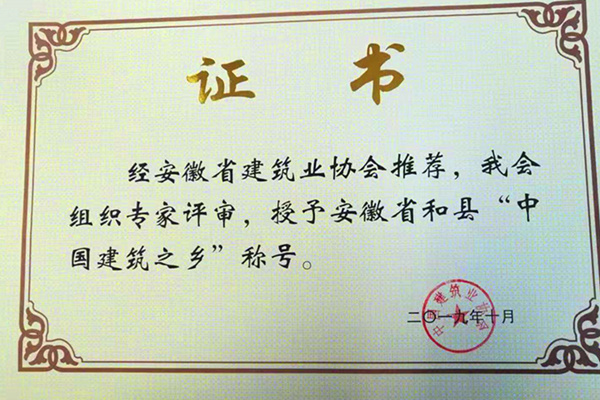 证书
经安徽省建筑业协会推荐，我会
组织专家评审，授予安徽省和县“中
国建筑之乡”称号。
二〇一九年十月
中国建筑业协会